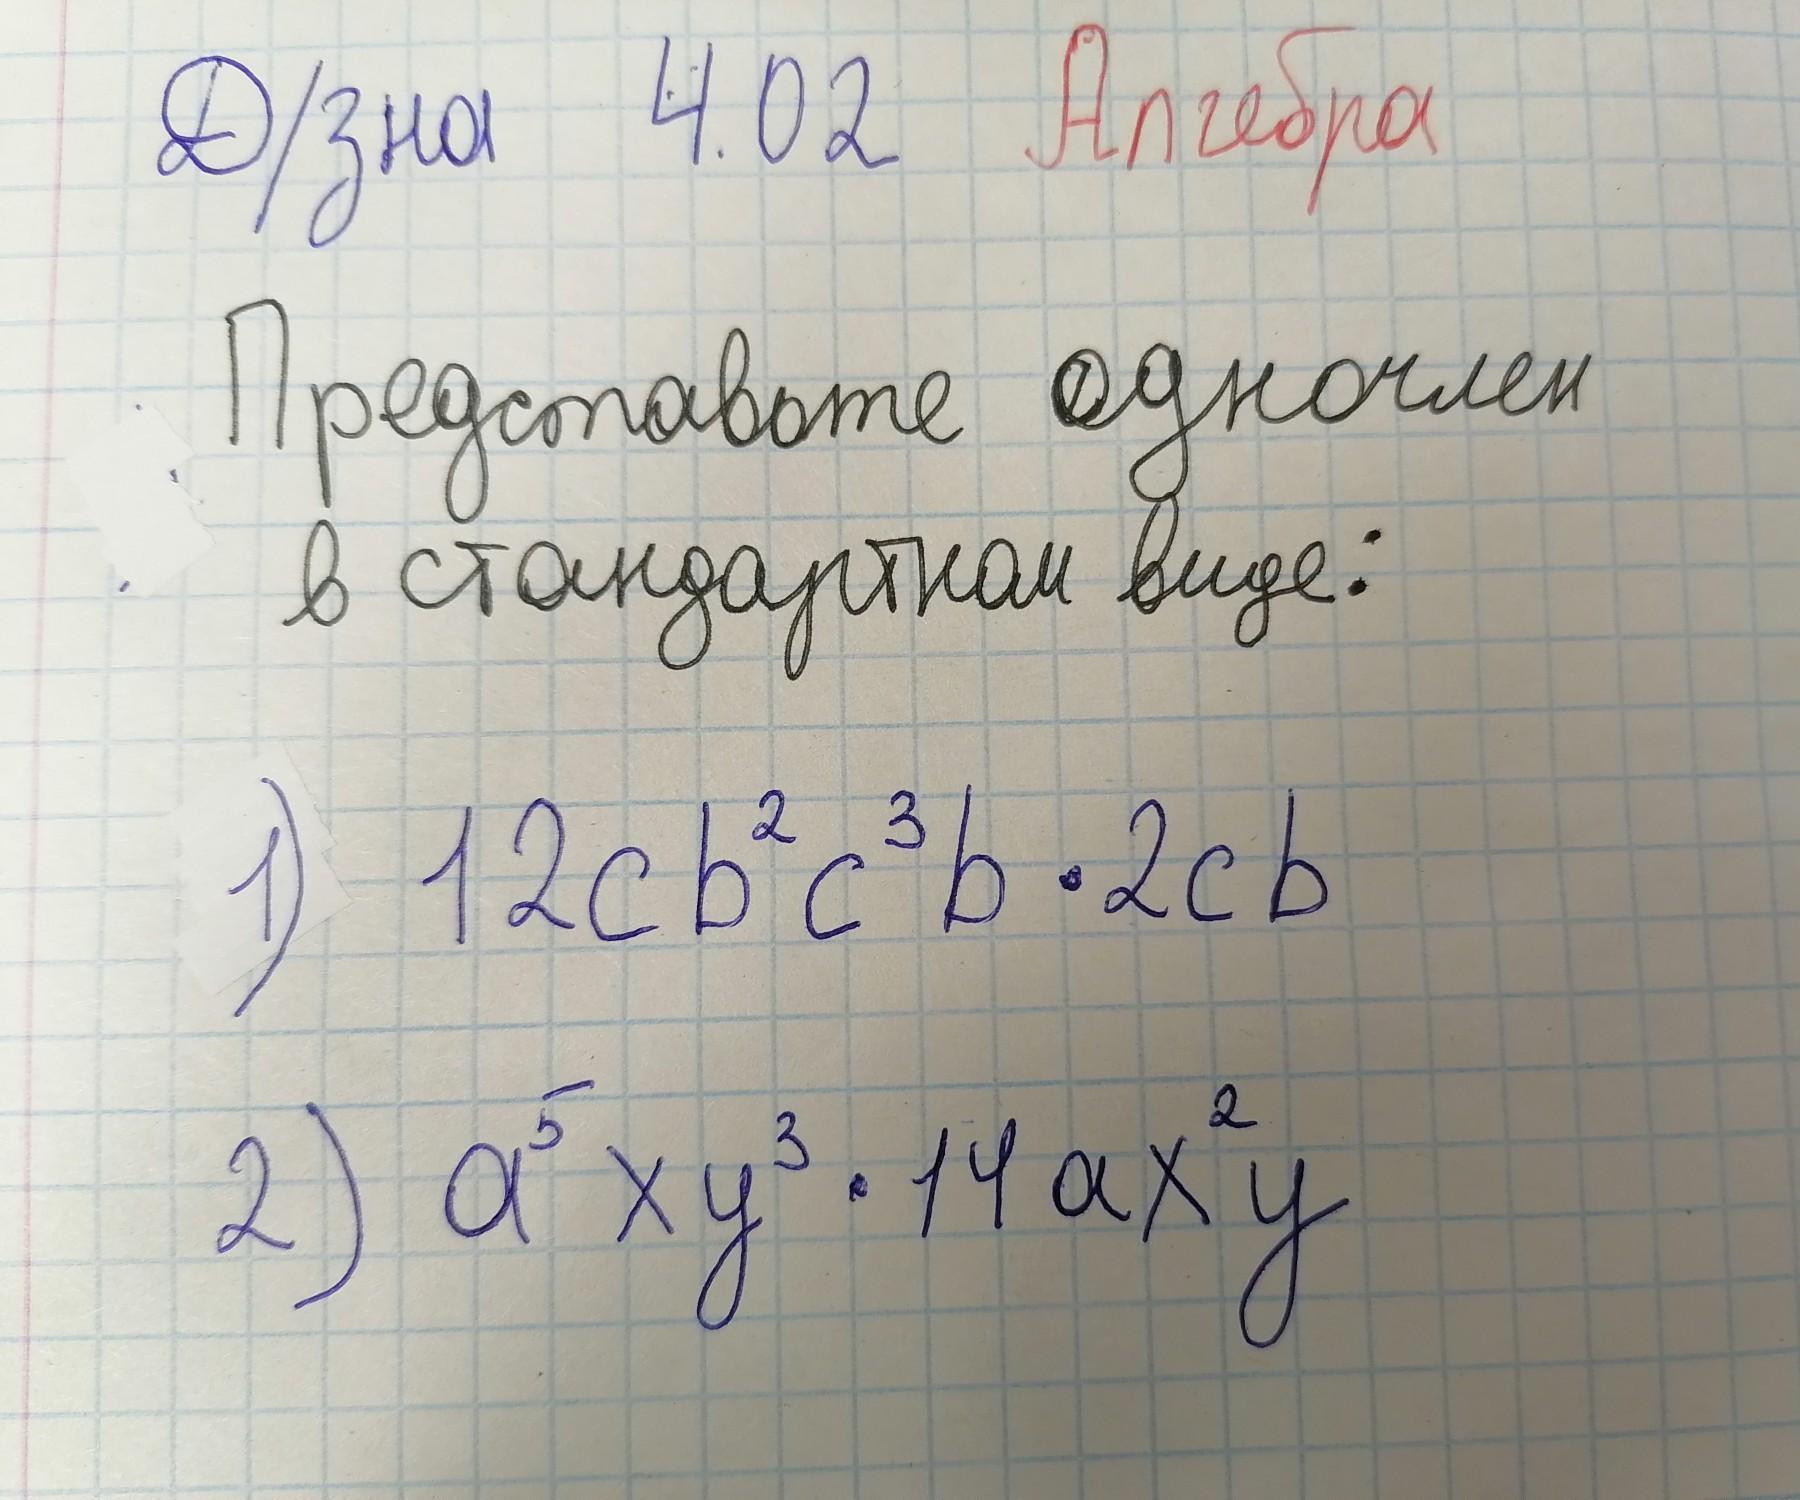 Д/з на 4.02 Алгебра
Представьте одночлен
в стандартном виде:
1) 12cb²c³b · 2cb
2) a⁵xy³ · 14ax²y